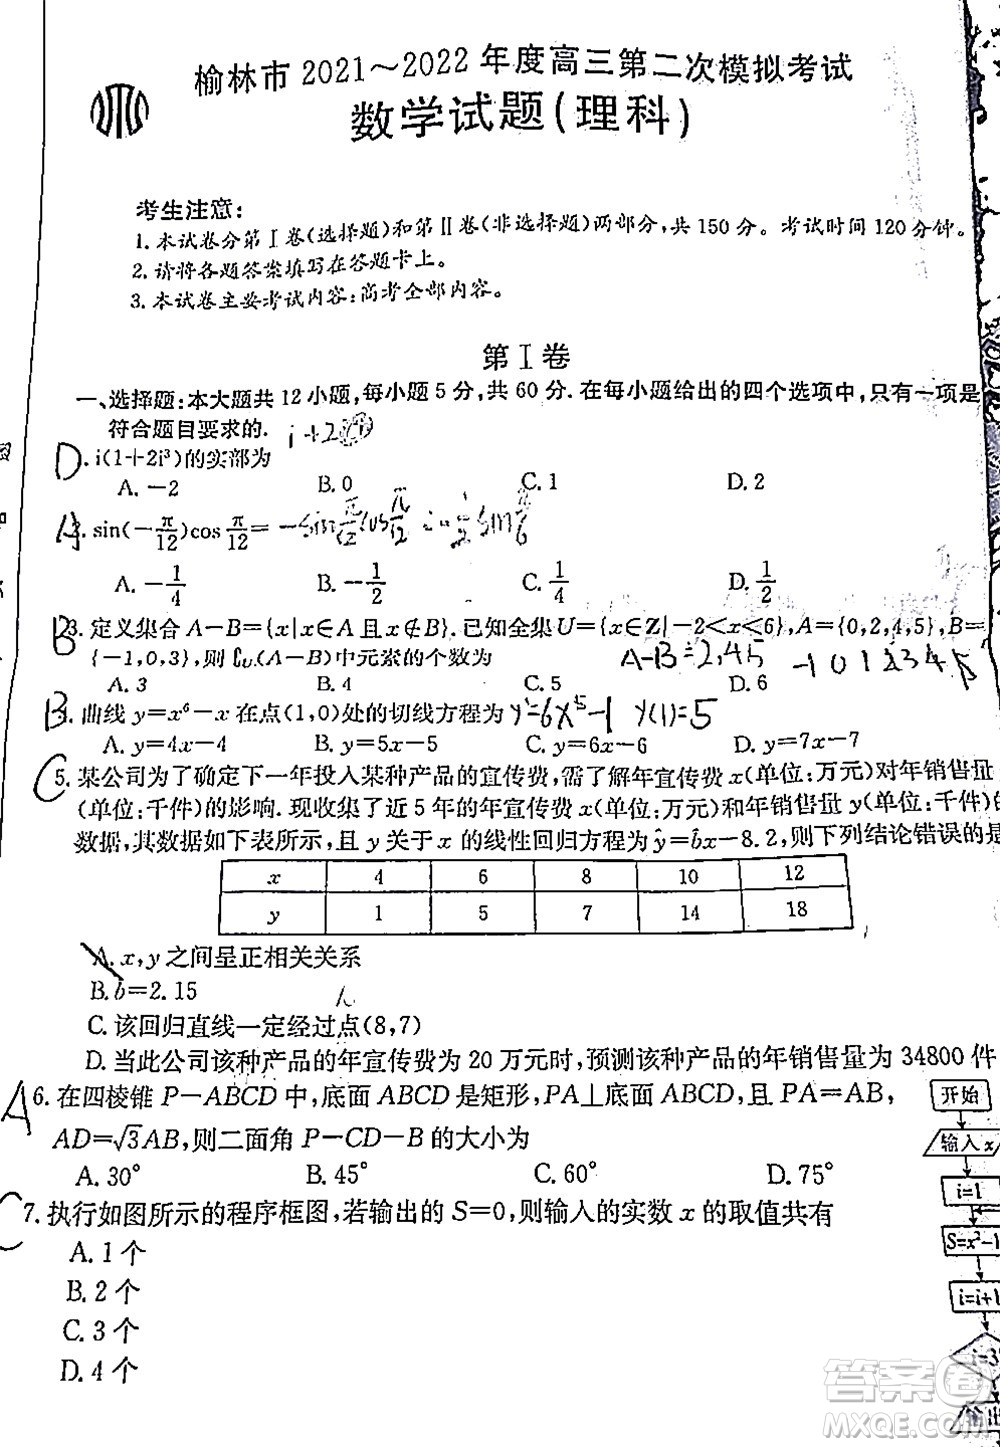 榆林市 2021～2022 年度高三第二次模拟考试
数学试题(理科)
考生注意:
1. 本试卷分第Ⅰ卷(选择题)和第Ⅱ卷(非选择题)两部分,共 150 分。考试时间 120 分钟。
2. 请将各题答案填写在答题卡上。
3. 本试卷主要考试内容:高考全部内容。
第Ⅰ卷
一、选择题:本大题共 12 小题,每小题 5 分,共 60 分. 在每小题给出的四个选项中,只有一项是
符合题目要求的. i+2
D . i(1+2i³)的实部为
A. −2 B. 0 C. 1 D. 2
A . sin(−π/12)cos π/12= −sin π/12 cos π/12 = 1/2 sin π/6
A. −1/4 B. −1/2 C. 1/4 D. 1/2
B 3. 定义集合 A−B={x|x∈A 且 x∉B}. 已知全集 U={x∈Z|−2<x<6},A={0,2,4,5},B=
{−1,0,3},则 ∁U(A−B)中元素的个数为 A−B=2,4,5 −1 0 1 2 3 4 5
A. 3 B. 4 C. 5 D. 6
B 4. 曲线 y=x⁶−x 在点(1,0)处的切线方程为 y'=6x⁵−1 y'(1)=5
A. y=4x−4 B. y=5x−5 C. y=6x−6 D. y=7x−7
C 5. 某公司为了确定下一年投入某种产品的宣传费,需了解年宣传费 x(单位:万元)对年销售量
(单位:千件)的影响. 现收集了近 5 年的年宣传费 x(单位:万元)和年销售量 y(单位:千件)的
数据,其数据如下表所示,且 y 关于 x 的线性回归方程为 ŷ=b̂x−8.2,则下列结论错误的是
x 4 6 8 10 12
y 1 5 7 14 18
A. x,y 之间呈正相关关系
B. b̂=2.15
C. 该回归直线一定经过点(8,7)
D. 当此公司该种产品的年宣传费为 20 万元时,预测该种产品的年销售量为 34800 件
A 6. 在四棱锥 P−ABCD 中,底面 ABCD 是矩形,PA⊥底面 ABCD,且 PA=AB,
AD=√3AB,则二面角 P−CD−B 的大小为
A. 30° B. 45° C. 60° D. 75°
C 7. 执行如图所示的程序框图,若输出的 S=0,则输入的实数 x 的取值共有
A. 1 个
B. 2 个
C. 3 个
D. 4 个
开始
输入 x
i=1
S=x²−1
i=i+1
i=3
输出
答案圈
MXQE.COM